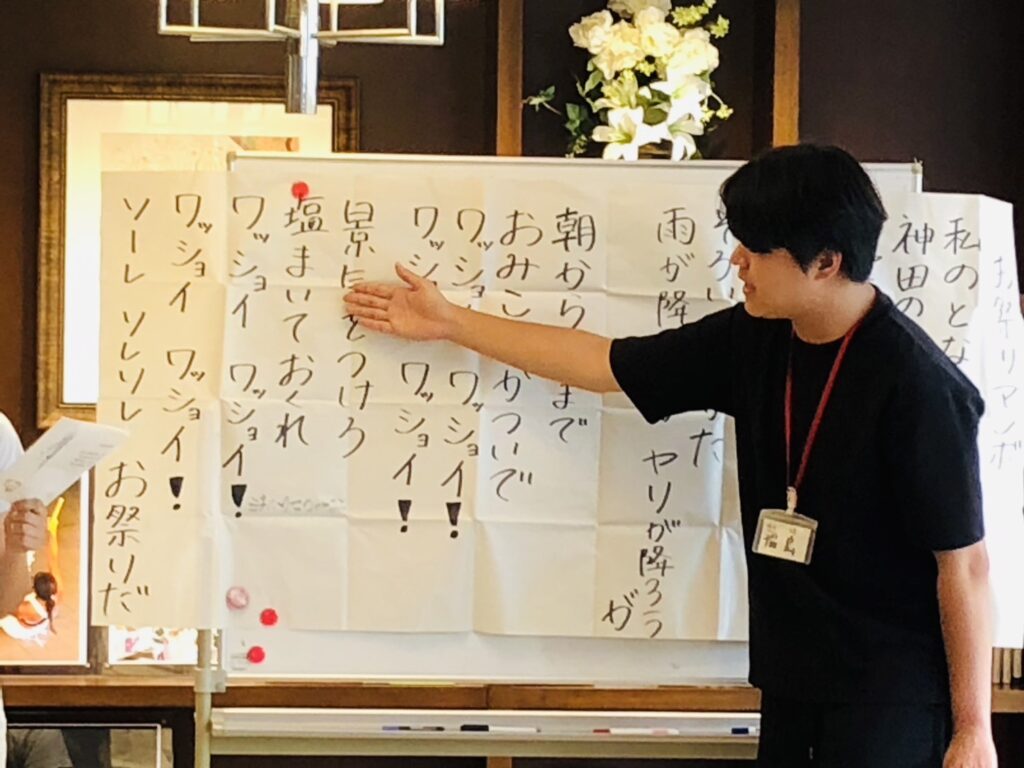 お祭りマンボ
私のとな
神田の
そろい た
雨が降 ヤリが降ろう
が
朝から まで
おみこ かついで
ワッショ ワッショイ!
ワッシ ワッショイ!
景 をつけろ
塩まいておくれ
ワッショイ ワッショイ!
ワッショイ ワッショイ!
ソーレ ソレソレ お祭りだ
福島